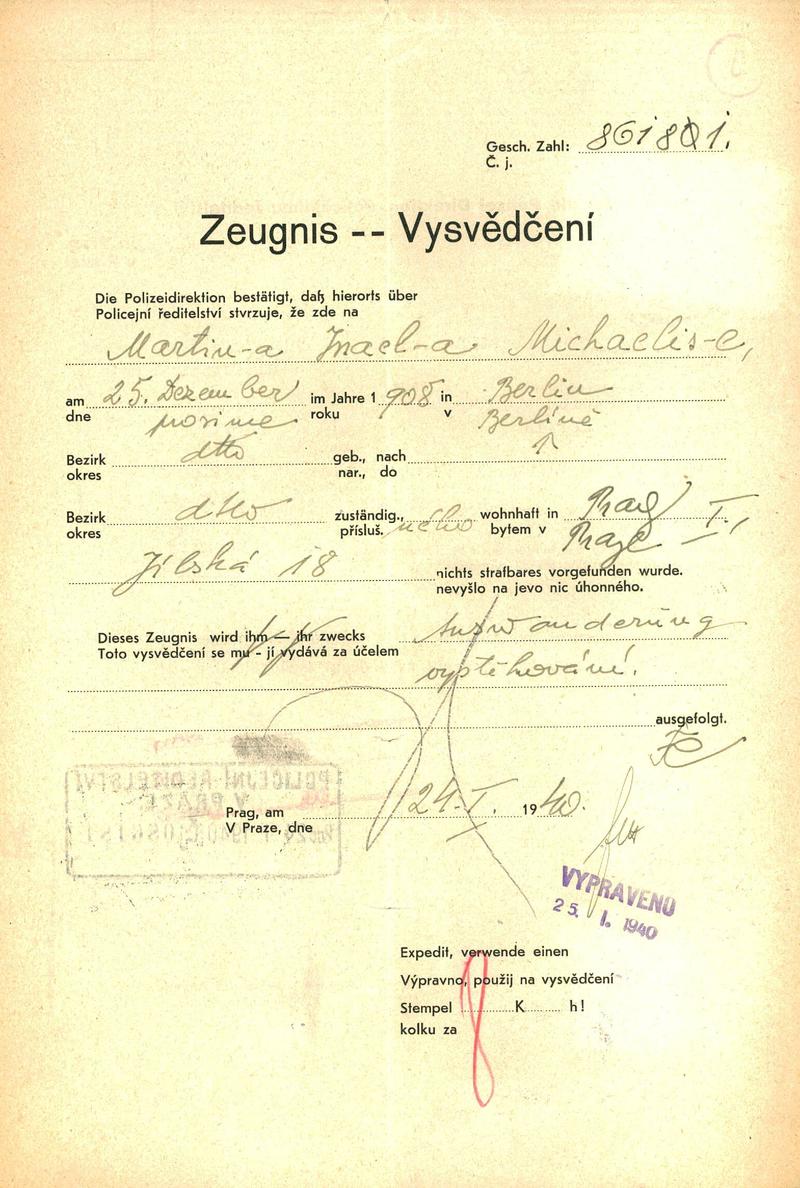 Gesch. Zahl: 861801.
Č. j.
Zeugnis -- Vysvědčení
Die Polizeidirektion bestätigt, daß hierorts über
Policejní ředitelství stvrzuje, že zde na
Martin-a Israel-a Michaelis-e,
am 25. Dezember im Jahre 1 908 in Berlin
dne prosince roku v Berlíně
Bezirk dtto geb., nach
okres nar., do
Bezirk dtto zuständig., wohnhaft in Prag I.,
okres přísluš. ného bytem v Praze
Jilská 18 nichts strafbares vorgefunden wurde.
nevyšlo na jevo nic úhonného.
Dieses Zeugnis wird ihm — ihr zwecks Auswanderung
Toto vysvědčení se mu - jí vydává za účelem
vystěhování.
ausgefolgt.
POLICEJNÍ ŘEDITELSTVÍ
V PRAZE
Prag, am 24. I. 1940.
V Praze, dne
VYPRAVENO
25. I. 1940
Expedit, verwende einen
Výpravno, použij na vysvědčení
Stempel K h!
kolku za